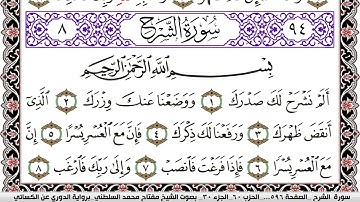 ٩٤ سُورَةُ الشَّرْحِ ٨
بِسْمِ اللَّهِ الرَّحْمَٰنِ الرَّحِيمِ
أَلَمْ نَشْرَحْ لَكَ صَدْرَكَ ١ وَوَضَعْنَا عَنكَ وِزْرَكَ ٢ الَّذِي
أَنقَضَ ظَهْرَكَ ٣ وَرَفَعْنَا لَكَ ذِكْرَكَ ٤ فَإِنَّ مَعَ الْعُسْرِ يُسْرًا ٥ إِنَّ
مَعَ الْعُسْرِ يُسْرًا ٦ فَإِذَا فَرَغْتَ فَانصَبْ ٧ وَإِلَىٰ رَبِّكَ فَارْغَب ٨
سورة الشرح الصفحة ٥٩٦ الحزب ٦٠ الجزء ٣٠ بصوت الشيخ مفتاح محمد السلطني برواية الدوري عن الكسائي